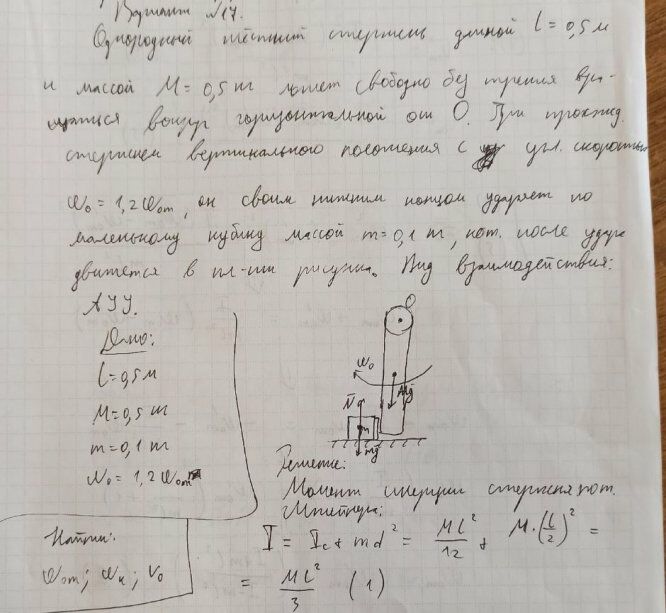 Вариант №17.
Однородный тонкий стержень длиной l = 0,5 м
и массой M = 0,5 кг может свободно без трения вра-
щаться вокруг горизонтальной оси O. При прохожд.
стержнем вертикального положения с угл. скоростью
ω₀ = 1,2 ωom, он своим нижним концом ударяет по
маленькому кубику массой m = 0,1 кг, кот. после удара
движется в пл-ти рисунка. Вид взаимодействия:
АУУ.
Дано:
l = 0,5 м
M = 0,5 кг
m = 0,1 кг
ω₀ = 1,2 ωom
Найти:
ωom; ωк; V₀
O
ω₀
Mg
N
m
mg
Решение:
Момент инерции стержня по т.
Штейнера:
I = Ic + md² = Ml²/12 + M·(l/2)² =
= Ml²/3 (1)